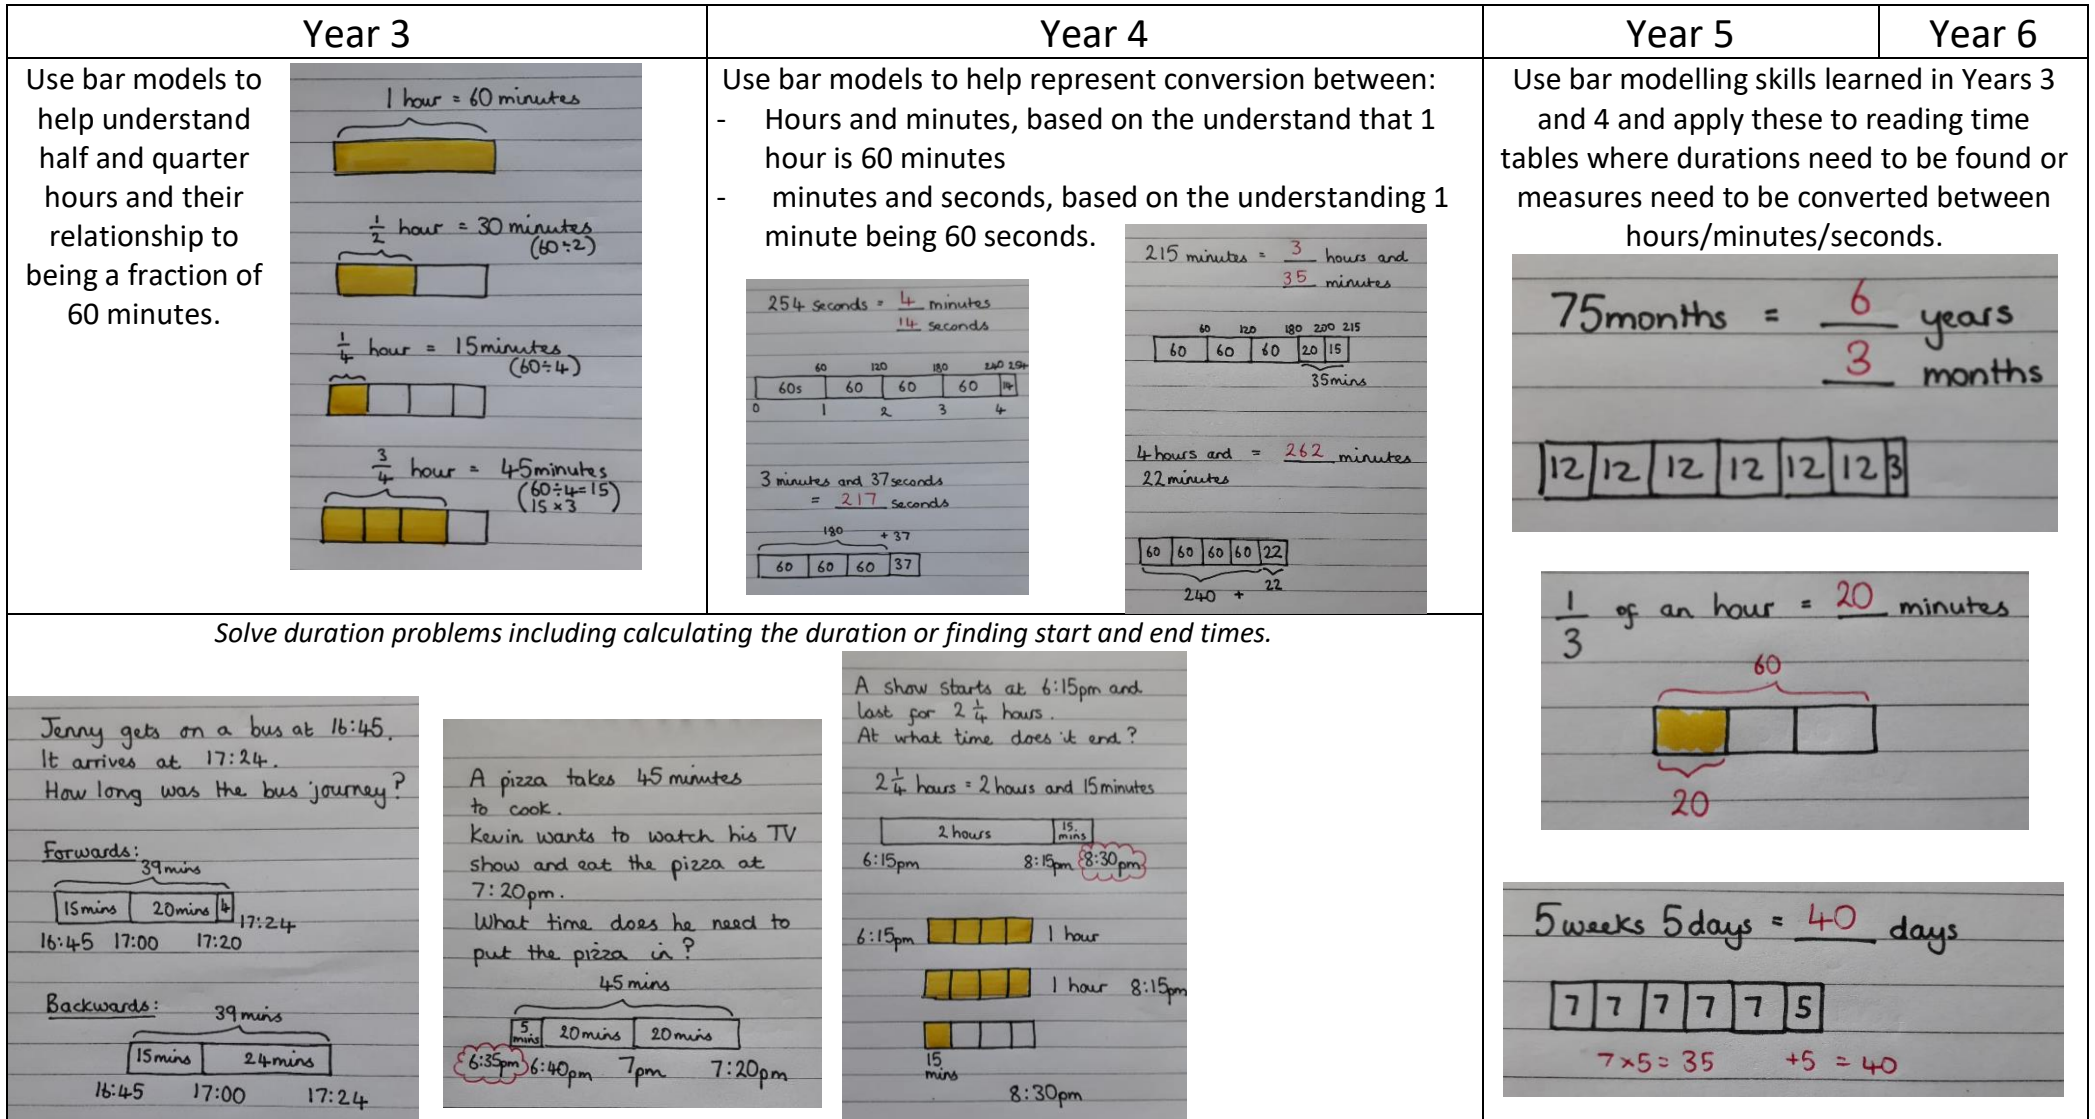 Year 3
Year 4
Year 5
Year 6
Use bar models to
help understand
half and quarter
hours and their
relationship to
being a fraction of
60 minutes.
1 hour = 60 minutes
1/2 hour = 30 minutes
(60÷2)
1/4 hour = 15 minutes
(60÷4)
3/4 hour = 45 minutes
(60÷4=15)
(15 × 3
Use bar models to help represent conversion between:
- Hours and minutes, based on the understand that 1
hour is 60 minutes
- minutes and seconds, based on the understanding 1
minute being 60 seconds.
254 seconds = 4 minutes
14 seconds
60 120 180 240 254
60s 60 60 60 14
0 1 2 3 4
3 minutes and 37 seconds
= 217 seconds
180 + 37
60 60 60 37
215 minutes = 3 hours and
35 minutes
60 120 180 200 215
60 60 60 20 15
35mins
4 hours and = 262 minutes
22 minutes
60 60 60 60 22
240 + 22
Use bar modelling skills learned in Years 3
and 4 and apply these to reading time
tables where durations need to be found or
measures need to be converted between
hours/minutes/seconds.
75 months = 6 years
3 months
12 12 12 12 12 12 3
1/3 of an hour = 20 minutes
60
20
5 weeks 5 days = 40 days
7 7 7 7 7 5
7×5 = 35 +5 = 40
Solve duration problems including calculating the duration or finding start and end times.
Jenny gets on a bus at 16:45.
It arrives at 17:24.
How long was the bus journey?
Forwards:
39mins
15mins 20mins 4
17:24
16:45 17:00 17:20
Backwards:
39 mins
15mins 24mins
16:45 17:00 17:24
A pizza takes 45 minutes
to cook.
Kevin wants to watch his TV
show and eat the pizza at
7:20pm.
What time does he need to
put the pizza in?
45 mins
5 mins 20 mins 20 mins
6:35pm 6:40pm 7pm 7:20pm
A show starts at 6:15pm and
last for 2 1/4 hours.
At what time does it end?
2 1/4 hours = 2 hours and 15 minutes
2 hours 15. mins
6:15pm 8:15pm 8:30pm
6:15pm 1 hour
1 hour 8:15pm
15
mins
8:30pm